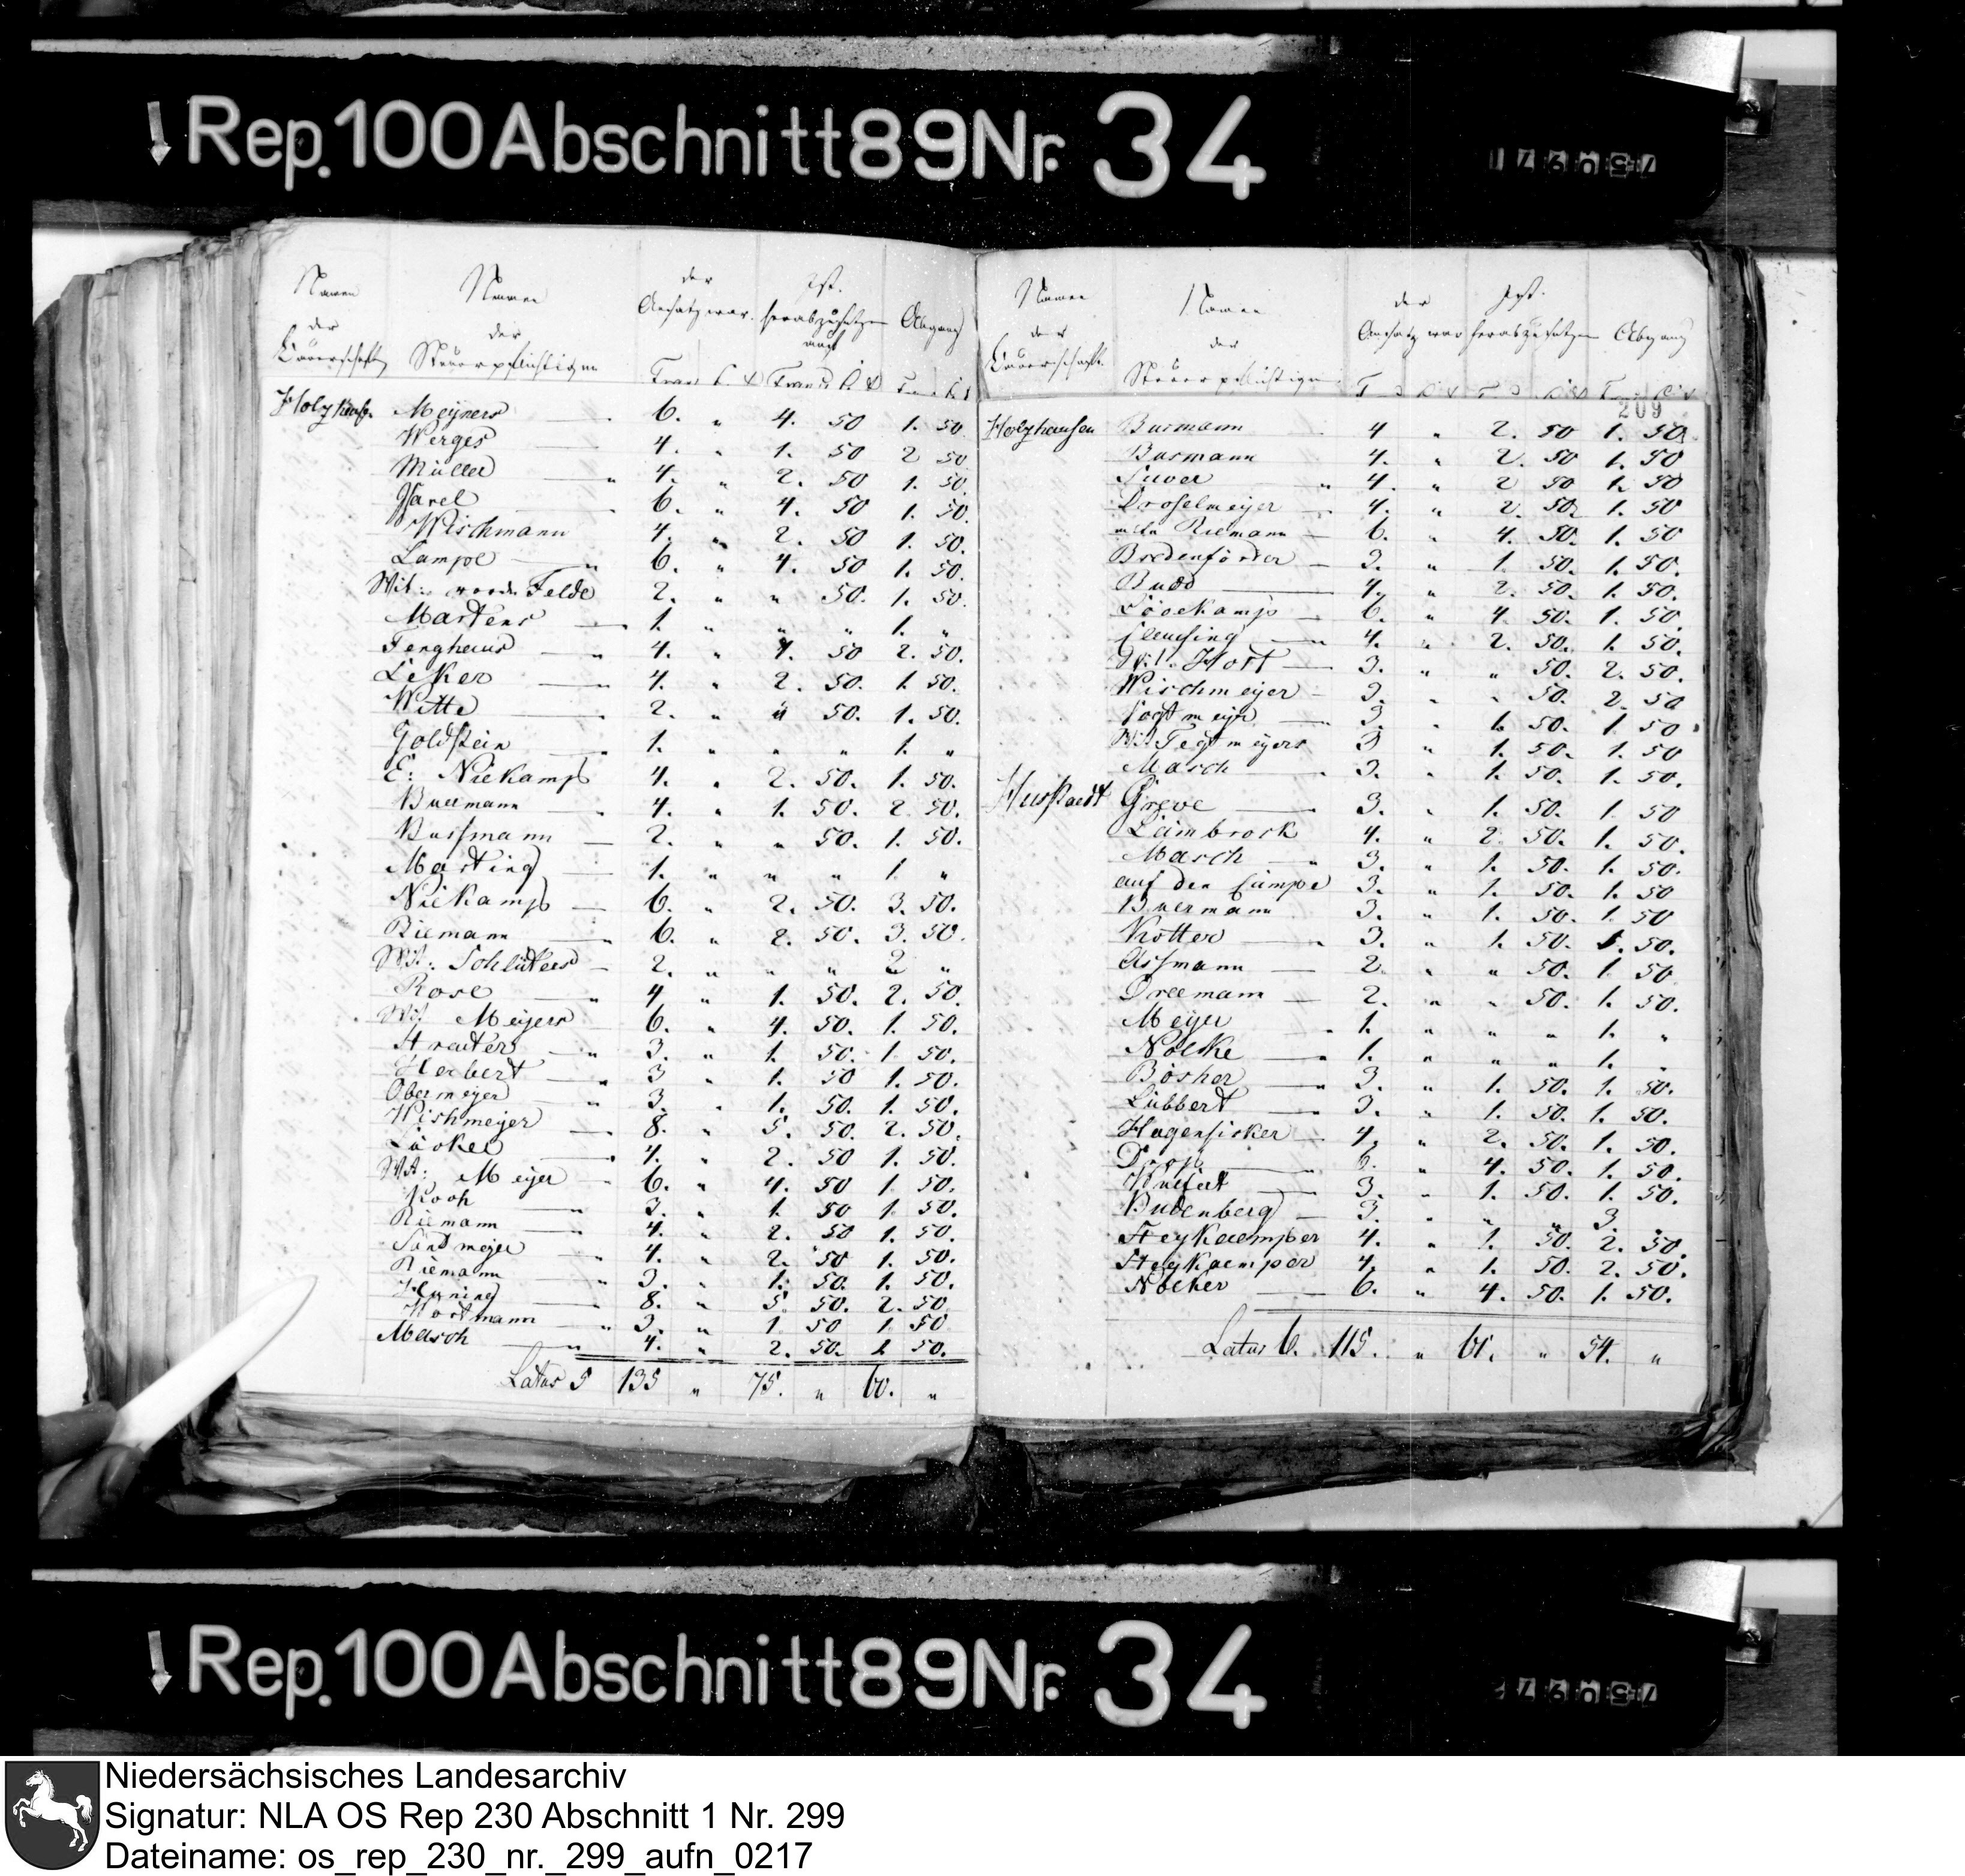 Rep. 100 Abschnitt 89 Nr. 34
Namen der Bäuerschaft Namen der Steuerpflichtigen der Ansatz war. Ist. herabzusetzen auf Abgang
Holzhaus. Meyners 6. " 4. 50 1. 50.
Werges 4. " 1. 50 2 50
Müller 4. " 2. 50 1. 50.
Varel 6. " 4. 50 1. 50.
Wischmann 4. " 2. 50 1. 50.
Lampe 6. " 4. 50 1. 50.
Wit: Felde 2. " " 50. 1. 50.
Martens 1. " " " 1. "
Fenghaus 4. " 1. 50 2. 50.
Leker 4. " 2. 50. 1. 50.
Witte 2. " " 50. 1. 50.
Goldstein 1. " " " 1. "
E: Niekamp 4. " 2. 50. 1. 50.
Buermann 4. " 1. 50. 2. 50.
Bussmann 2. " " 50. 1. 50.
Marting 1. " " " 1 "
Niekamp 6. " 2. 50. 3. 50.
Riemann 6. " 2. 50. 3. 50.
Wit: Schlüters 2. " " " 2 "
Rose 4 " 1. 50. 2. 50.
Wit Meyers 6. " 4. 50. 1. 50.
Straters 3. " 1. 50. 1 50.
Herbert 3 " 1. 50 1. 50.
Obermeyer 3. " 1. 50. 1. 50.
Wishmeyer 8. " 5. 50. 2. 50.
4. " 2. 50 1. 50.
Wit: Meyer 6. " 4. 50 1 50.
Kooh 3. " 1. 50 1. 50.
Riemann 4. " 2. 50 1. 50.
Sandmeyer 4. " 2. 50 1. 50.
Riemann 3. " 1. 50. 1. 50.
Huning 8. " 5. 50. 2. 50
Hortmann 3. " 1 50 1 50
Masch 4. " 2. 50. 1. 50.
Latus 5 135 " 75. " 60. "
Namen der Bäuerschaft Namen der Steuerpflichtigen der Ansatz war Ist. herabzusetzen Abgang
209
Holzhausen Burmann 4 " 2. 50 1. 50.
Burmann 4. " 2. 50 1. 50
Suver 4. " 2 50 1. 50
Droselmeyer 4. " 2. 50. 1. 50
Riemann 6. " 4. 50. 1. 50
Bredenförder 3. " 1 50. 1. 50.
Budd 4. " 2. 50. 1. 50.
6. " 4. 50. 1. 50.
4. " 2. 50. 1. 50.
Wit. Horst 3. " " 50. 2. 50.
Wischmeyer 3. " " 50. 2. 50
Vogtmeyer 3. " 1. 50. 1 50
Wit Tegtmeyers 3 " 1. 50. 1. 50
Masch 3. " 1. 50. 1. 50.
Hustaedt Greve 3. " 1. 50. 1. 50
Lambrock 4. " 2. 50. 1. 50.
Masch 3. " 1. 50. 1. 50.
auf den Campe 3. " 1. 50. 1. 50
Buermann 3. " 1. 50. 1. 50
Kotter 3. " 1. 50. 1. 50.
Assmann 2 " " 50. 1. 50
Dreemann 2. " " 50. 1. 50.
Meyer 1. " " " 1. "
Nolke 1. " " " 1. "
Bosher 3. " 1. 50. 1. 50.
Lübbert 3. " 1. 50. 1. 50.
Hagensicker 4. " 2. 50. 1. 50.
Drop 6. " 4. 50. 1. 50.
3. " 1. 50. 1. 50.
Budenberg 3. " " " 3. "
Heykaemper 4. " 1. 50. 2. 50.
Heykaemper 4. " 1. 50. 2. 50.
Nölker 6. " 4. 50. 1. 50.
Latus 6. 115. " 61. " 54. "
Rep. 100 Abschnitt 89 Nr. 34
Niedersächsisches Landesarchiv
Signatur: NLA OS Rep 230 Abschnitt 1 Nr. 299
Dateiname: os_rep_230_nr._299_aufn_0217